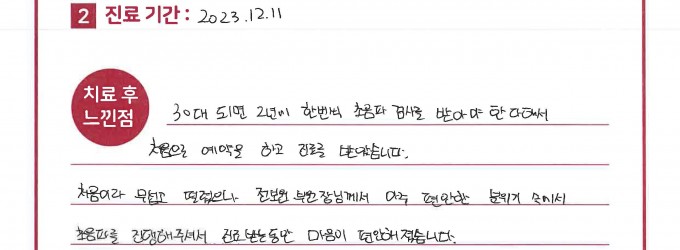 2 진료 기간 : 2023.12.11
치료 후
느낀점
30대 되면 2년에 한번씩 초음파 검사를 받아야 한다해서
처음으로 예약을 하고 진료를 받았습니다.
처음이라 무섭고 떨렸으나 전보원 부원장님께서 아주 편안한 분위기 속에서
초음파를 진행해주셔서 진료 받는동안 마음이 편안해졌습니다.